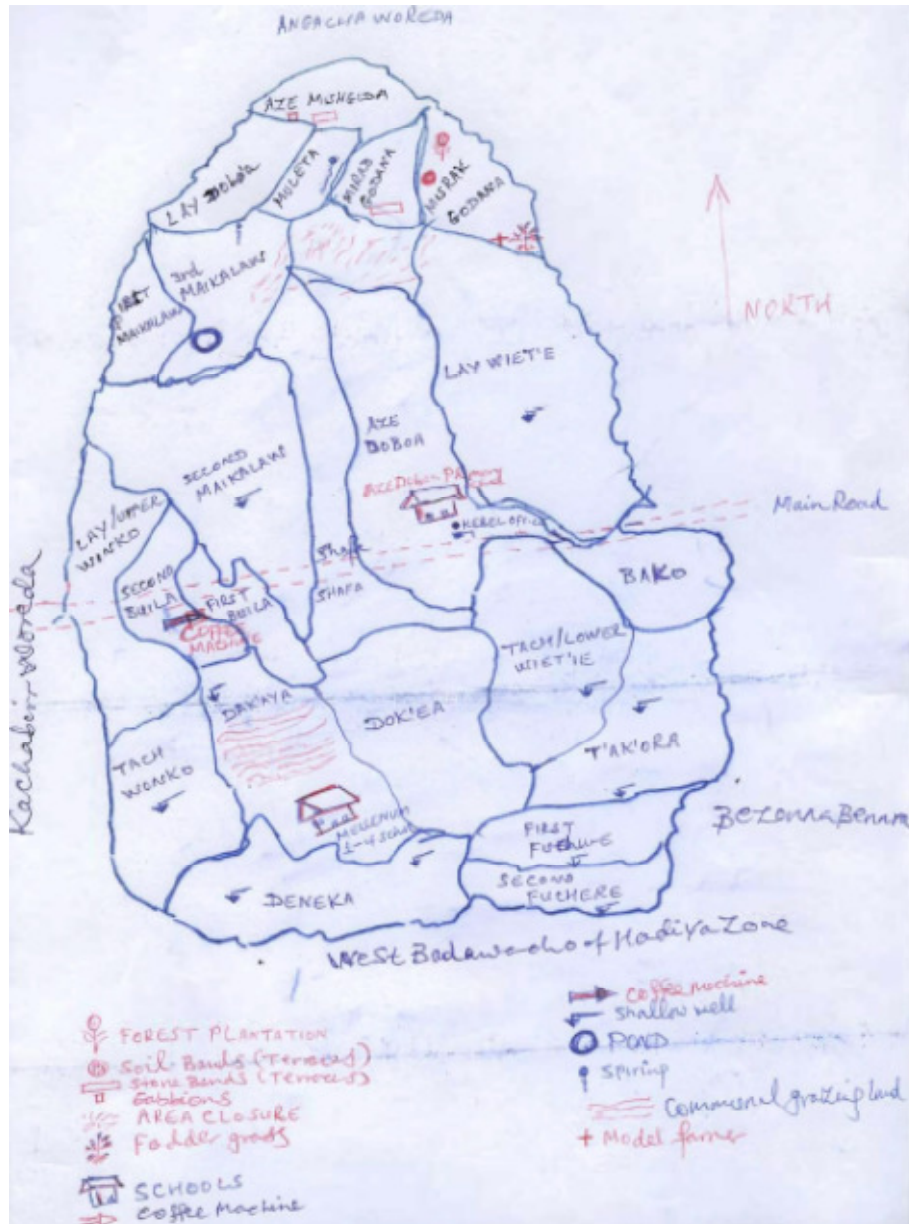 ANGACHA WOREDA
AZE MISHGIDA
LAY Dobo'a
MULETA
MIRAB
GODANA
MISRAK
GODANA
FIRST
MAIKALAW
3rd
MAIKALAW
NORTH
LAY WIET'E
AZE
DOBOA
SECOND
MAIKALAW
KEBEL OFFICE
Main Road
LAY/UPPER
WONKO
SECOND
BUILA
FIRST
BUILA
COFFEE
MACHINE
Shafa
SHAFA
BAKO
TACH/LOWER
WIET'IE
Kachabirr woreda
DAK'AYA
DOK'EA
T'AK'ORA
TACH
WONKO
MELLENIUM
1-4 School
FIRST
SECOND
FUCHERE
DENEKA
West Badawacho of Hadiya Zone
FOREST PLANTATION
Soil Bands (Terraces)
Stone Bands (Terraces)
Gabbions
AREA CLOSURE
Fodder grass
SCHOOLS
Coffee Machine
Coffee machine
Shallow well
POND
Spiring
Communal grazing land
Model farmer